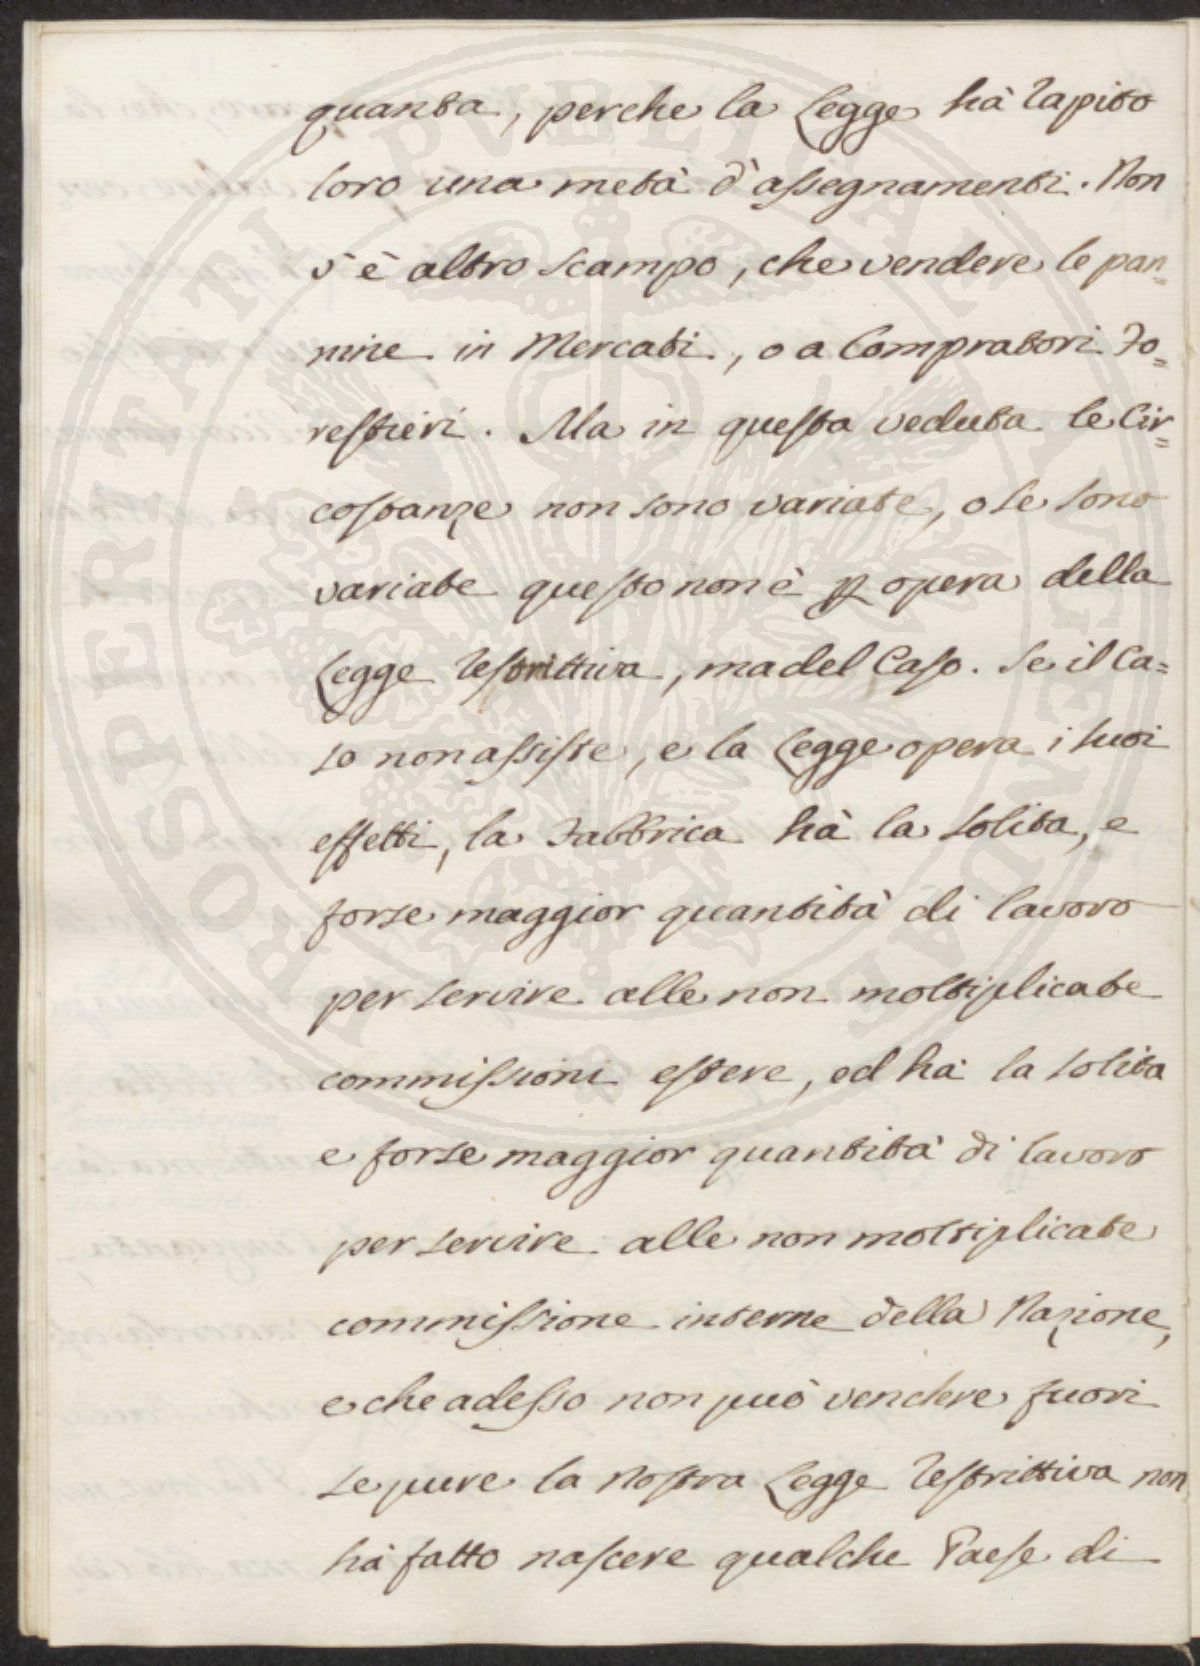 quanta, perche la Legge hà rapito
loro una metà d'assegnamenti. Non
v'è altro scampo, che vendere le pan=
nine in Mercati, o a Compratori Fo=
restieri. Ma in questa veduta le Cir=
costanze non sono variate, o se sono
variate questo non è ꝑ opera della
Legge restrittiva, ma del Caso. Se il Ca=
so non assiste, e la Legge opera i suoi
effetti, la Fabbrica hà la solita, e
forse maggior quantità di lavoro
per servire alle non moltiplicate
commissioni estere, ed hà la solita
e forse maggior quantità di lavoro
per servire alle non moltiplicate
commissione interne della Nazione,
e che adesso non può vendere fuori
se pure la nostra Legge restrittiva non
hà fatto nascere qualche Paese di
PROSPERITATI PUBLICAE AUGENDAE